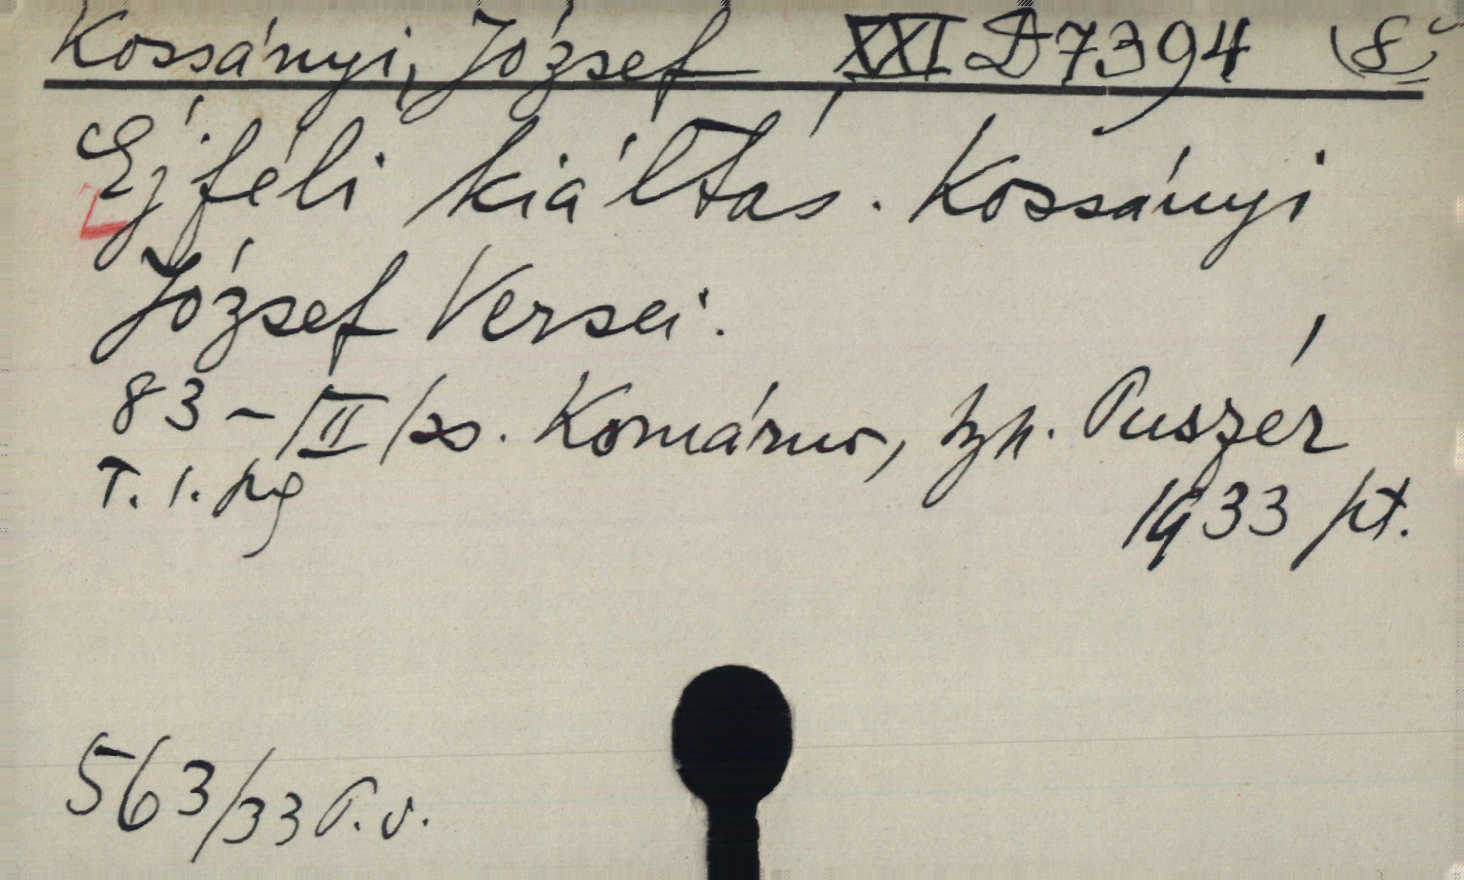 Kossányi, József XXI D 7394 (8°)
Éjféli kiáltás. Kossányi
József Versei.
83 - /II/ Komárno, Puszér
T. 1. 1933 pt.
563/33 P. v.